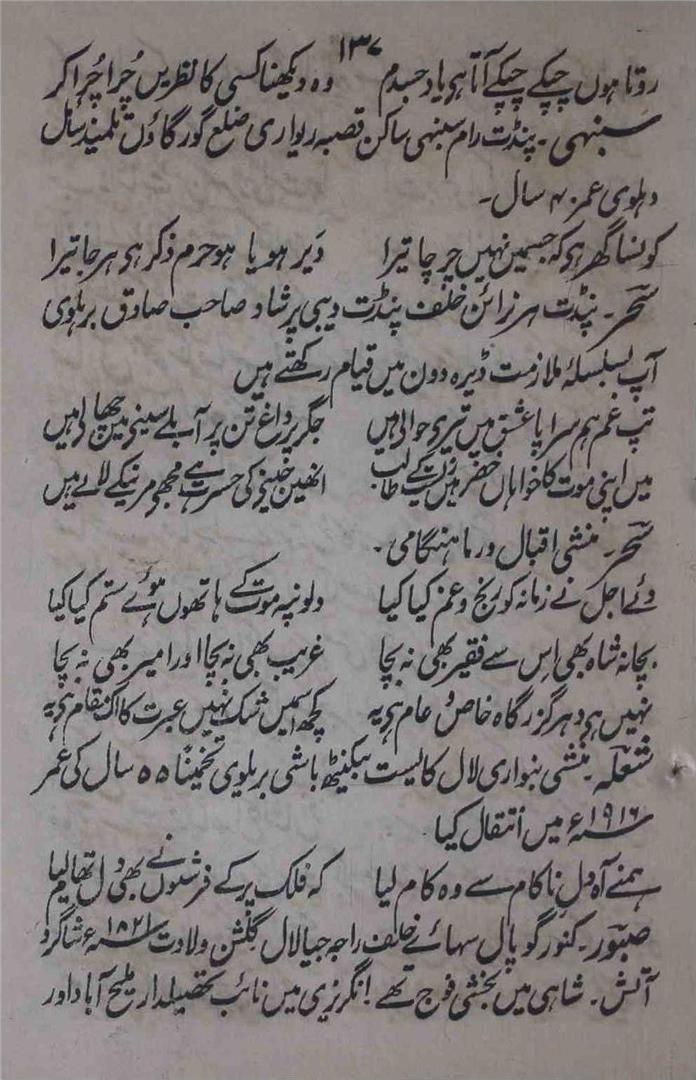 ۱۳۷
روتا ہوں چپکے چپکے آتا ہی یاد جسدم وہ دیکھنا کسی کا نظریں چُرا چُرا کر
سنبہی۔ پنڈت رام سنبہی ساکن قصبہ ریواری ضلع گورگاؤں تلمیذ سائل
دہلوی عمر ۴۰ سال۔
کونسا گھر ہی کہ جسمیں نہیں چرچا تیرا دَیر ہو یا ہو حرم ذکر ہی ہر جا تیرا
سحر۔ پنڈت ہر نرائن خلف پنڈت دیبی پرشاد صاحب صادق بریلوی
آپ بسلسلۂ ملازمت ڈیرہ دون میں قیام رکھتے ہیں
تپ غم ہم سراپا عشق میں تیری حوالی ہیں جگر پر داغ تن پر آبلے سینے میں چھالی ہیں
میں اپنی موت کا خواہاں خضر ہیں زیست کے طالب انھیں جینے کی حسرت ہے مجھی مرنیکے لالے ہیں
سحر۔ منشی اقبال ورما ہنگامی۔
دئے اجل نے زمانہ کو رنج و غم کیا کیا دلونپہ موت کے ہاتھوں ہوئے ستم کیا کیا
بچا نہ شاہ بھی اِس سے فقیر بھی نہ بچا غریب بھی نہ بچا اور امیر بھی نہ بچا
نہیں ہی دہر گزرگاہ خاص و عام ہی یہ کچھ اسمیں شک نہیں عبرت کا اک مقام ہی یہ
شعلہ۔ منشی بنواری لال کالیست بیکنیٹھ باشی بریلوی تخمیناً ۵۵ سال کی عمر
سنہ ۱۹۱۶ء میں انتقال کیا
ہمنے آہ دل ناکام سے وہ کام لیا کہ فلک پر کے فرشتوں نے بھی دل تھام لیا
صبور۔ کنور گوپال سہائے خلف راجہ جیالال گلشن ولادت سنہ ۱۸۲۱ء شاگرد
آتش۔ شاہی میں بخشی فوج تھے! انگریزی میں نائب تحصیلدار ملیح آباد اور